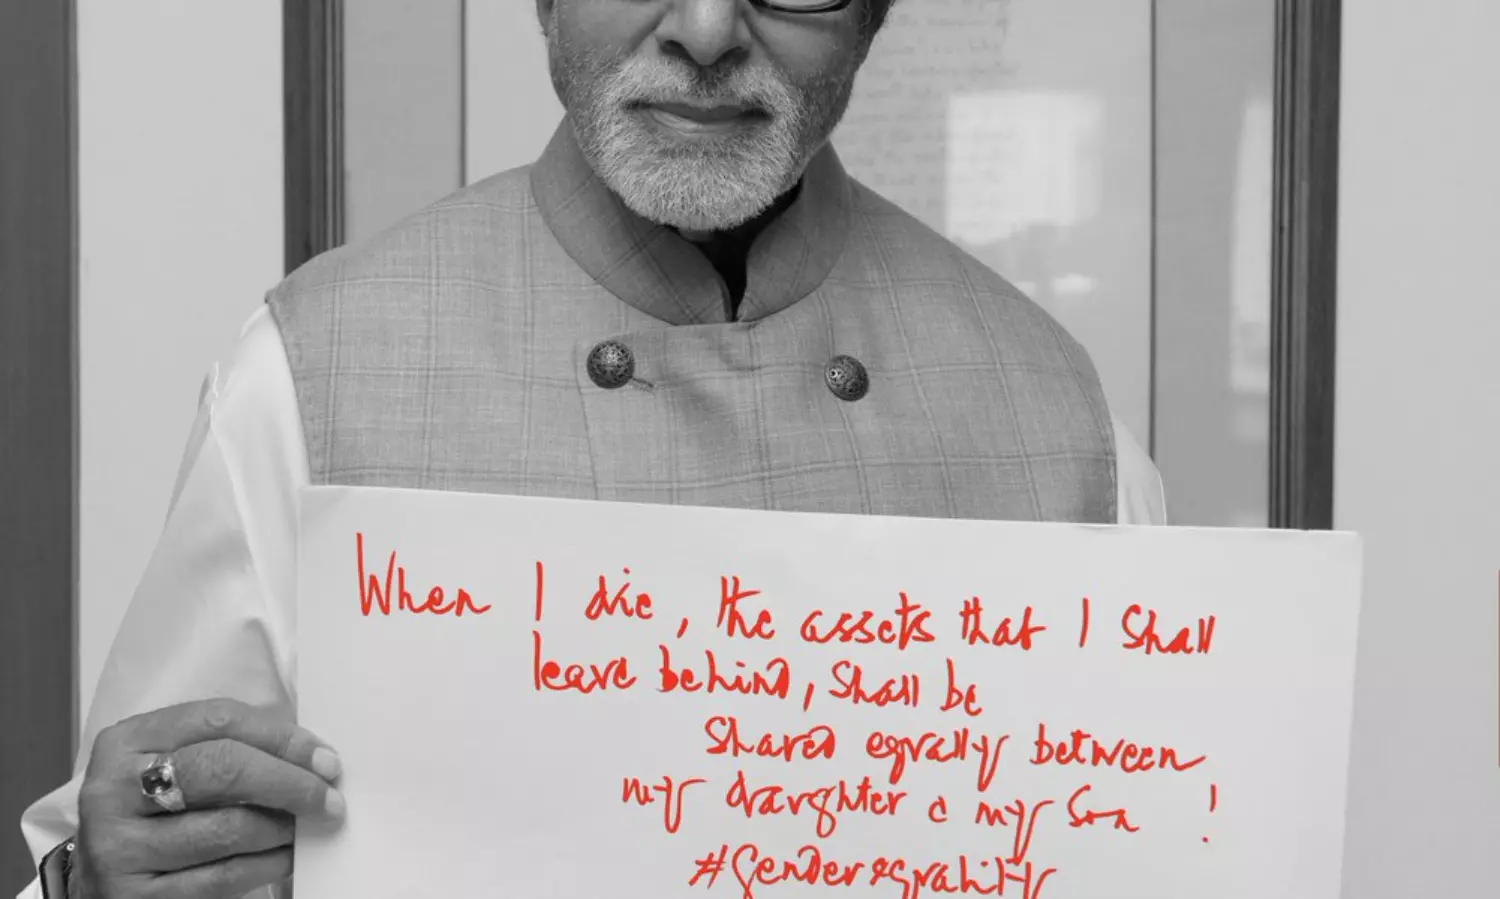 When I die, the assets that I shall
leave behind, shall be
shared equally between
my daughter & my son !
#genderequality